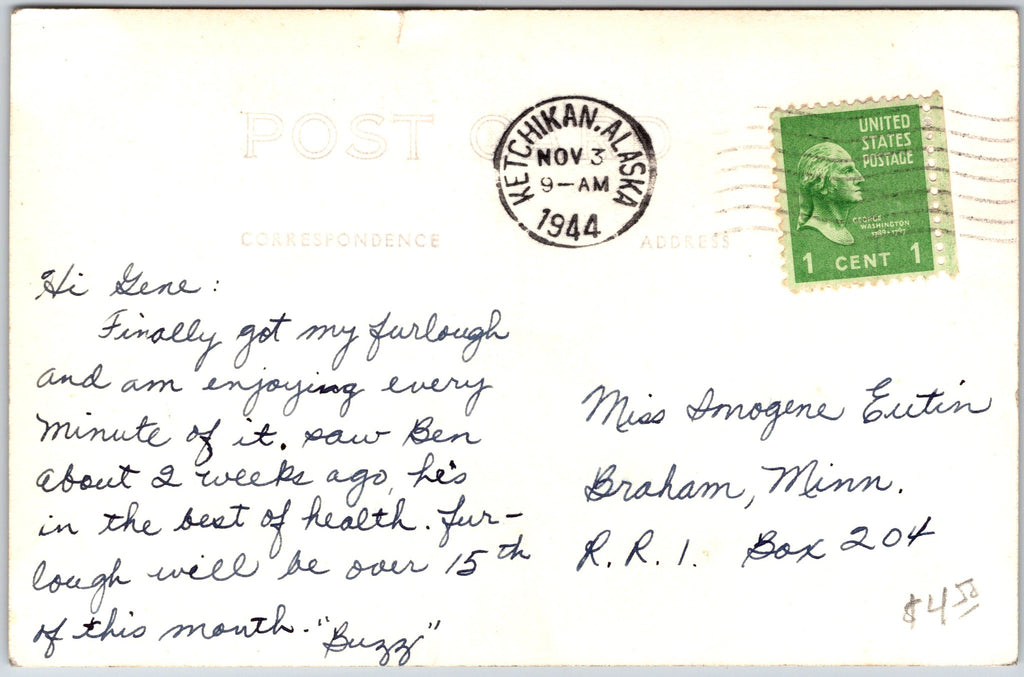 POST CARD
KETCHIKAN, ALASKA
NOV 3
9-AM
1944
UNITED
STATES
POSTAGE
GEORGE
WASHINGTON
1789-1797
1 CENT 1
CORRESPONDENCE
ADDRESS
Hi Gene:
Finally got my furlough
and am enjoying every
minute of it. saw Ben
about 2 weeks ago, he's
in the best of health. fur-
lough will be over 15th
of this month. "Buzz"
Miss Imogene Eutin
Braham, Minn.
R.R.1. Box 204
$4.50